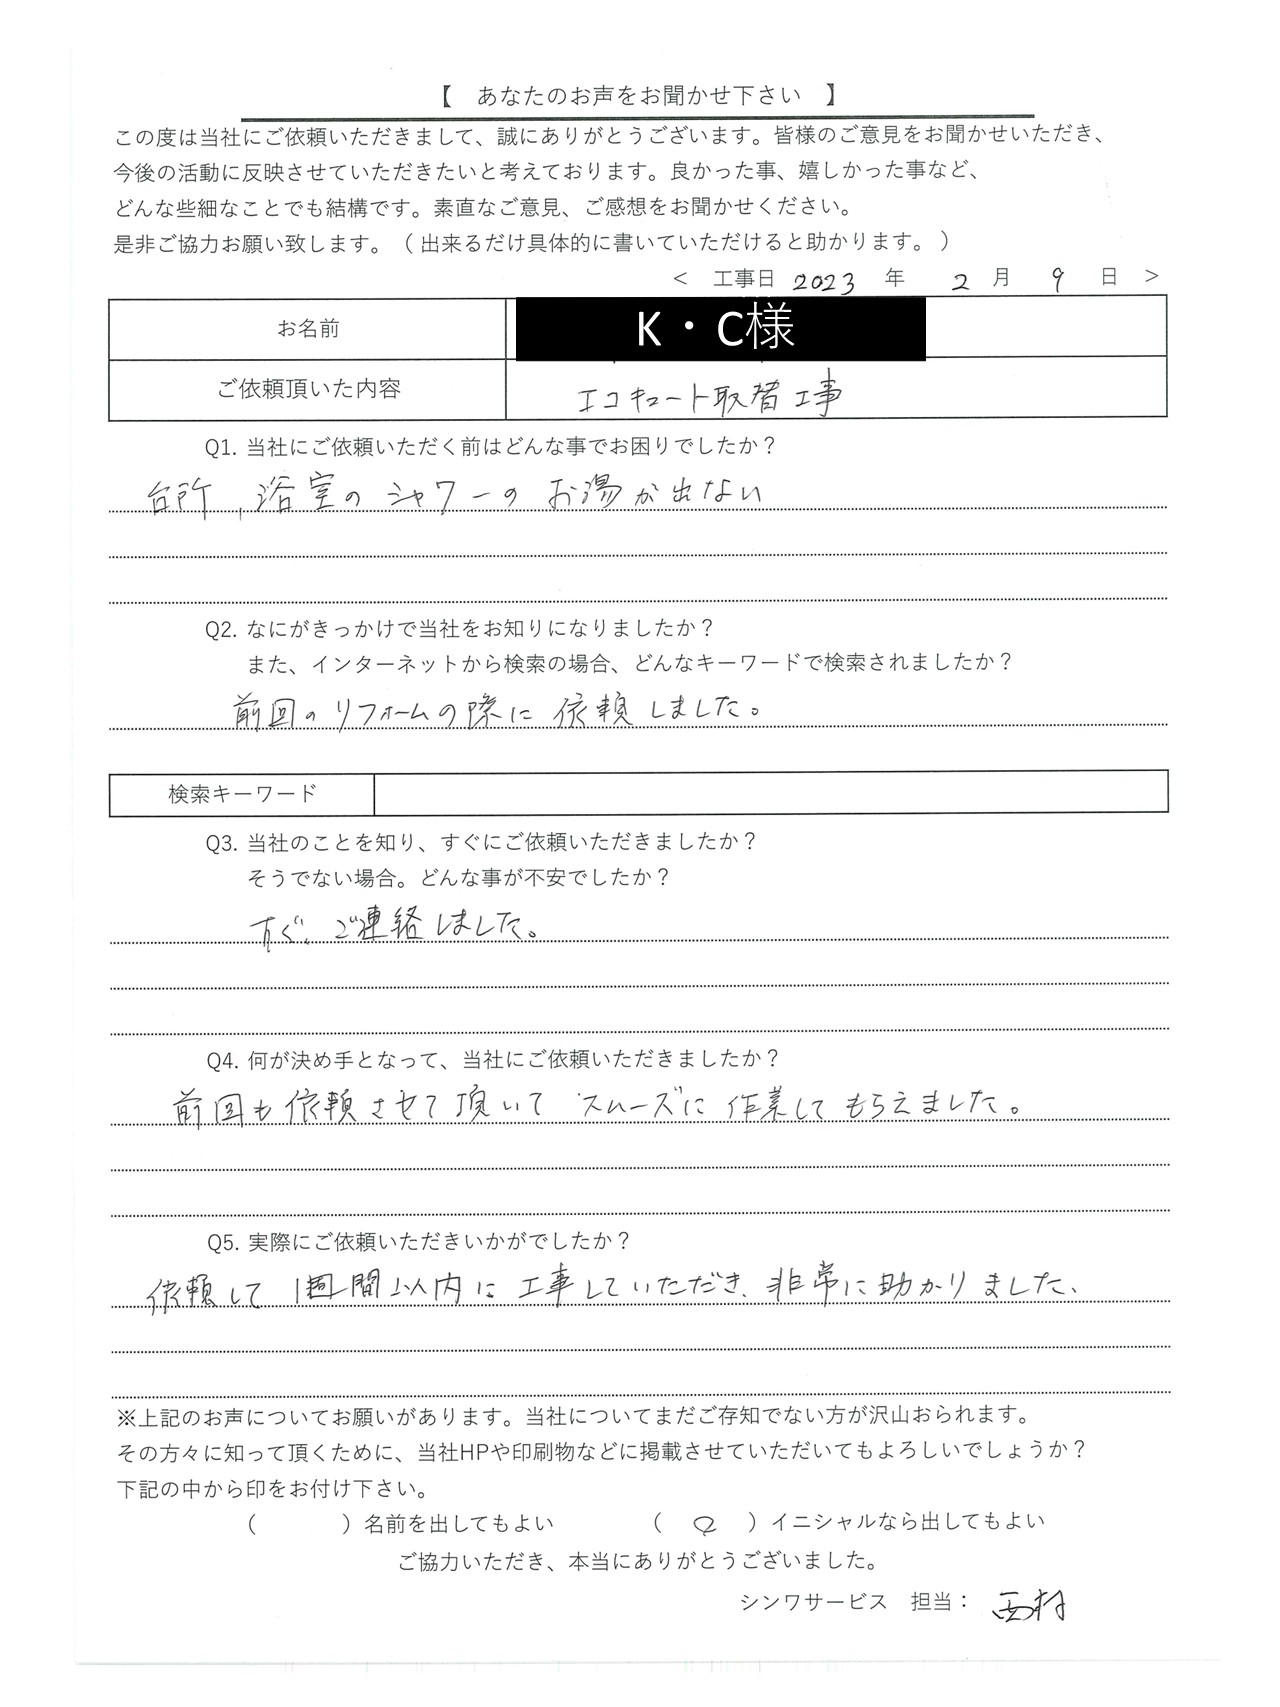 【 あなたのお声をお聞かせ下さい 】
この度は当社にご依頼いただきまして、誠にありがとうございます。皆様のご意見をお聞かせいただき、
今後の活動に反映させていただきたいと考えております。良かった事、嬉しかった事など、
どんな些細なことでも結構です。素直なご意見、ご感想をお聞かせください。
是非ご協力お願い致します。（ 出来るだけ具体的に書いていただけると助かります。 ）
＜ 工事日 2023 年 2 月 9 日 ＞
お名前 K・C様
ご依頼頂いた内容 エコキュート取替工事
Q1. 当社にご依頼いただく前はどんな事でお困りでしたか？
台所、浴室のシャワーのお湯が出ない
Q2. なにがきっかけで当社をお知りになりましたか？
また、インターネットから検索の場合、どんなキーワードで検索されましたか？
前回のリフォームの際に依頼しました。
検索キーワード
Q3. 当社のことを知り、すぐにご依頼いただきましたか？
そうでない場合。どんな事が不安でしたか？
すぐ、ご連絡しました。
Q4. 何が決め手となって、当社にご依頼いただきましたか？
前回も依頼させて頂いてスムーズに作業してもらえました。
Q5. 実際にご依頼いただきいかがでしたか？
依頼して1週間以内に工事していただき、非常に助かりました、
※上記のお声についてお願いがあります。当社についてまだご存知でない方が沢山おられます。
その方々に知って頂くために、当社HPや印刷物などに掲載させていただいてもよろしいでしょうか？
下記の中から印をお付け下さい。
（ ）名前を出してもよい （ ○ ）イニシャルなら出してもよい
ご協力いただき、本当にありがとうございました。
シンワサービス 担当： 西村